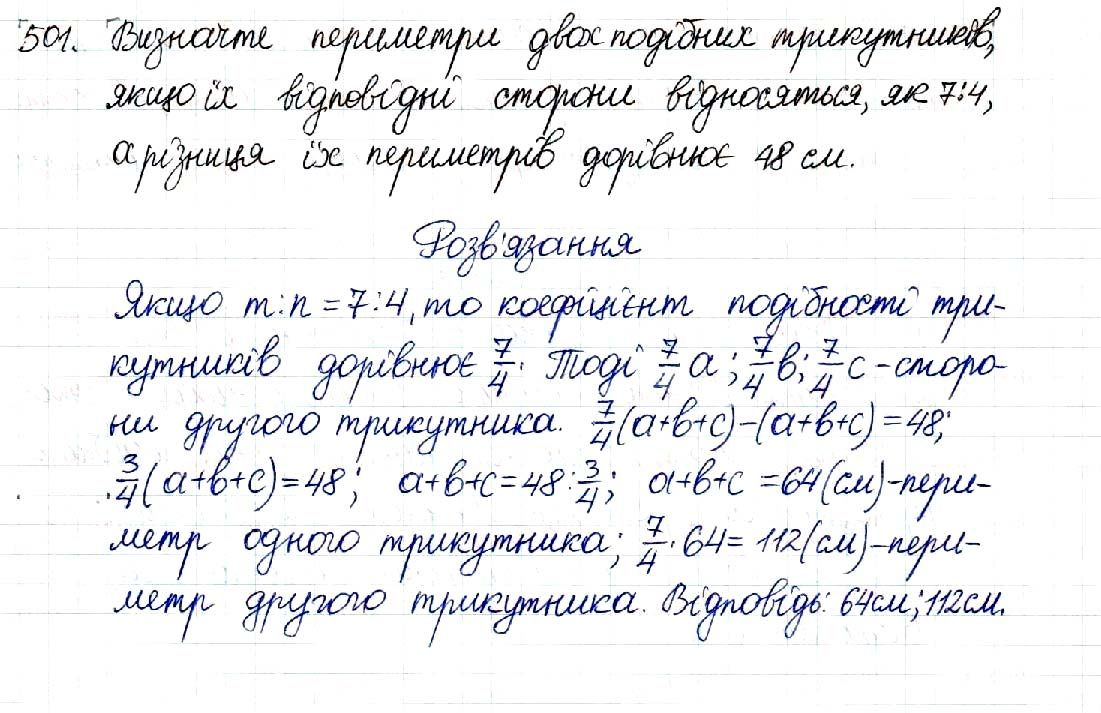 501. Визначте периметри двох подібних трикутників,
якщо їх відповідні сторони відносяться, як 7:4,
а різниця їх периметрів дорівнює 48 см.
Розв'язання
Якщо m:n=7:4, то коефіцієнт подібності три-
кутників дорівнює 7/4. Тоді 7/4 a; 7/4 b; 7/4 c - сторо-
ни другого трикутника. 7/4(a+b+c)-(a+b+c)=48;
3/4(a+b+c)=48; a+b+c=48:3/4; a+b+c=64(см)-пери-
метр одного трикутника; 7/4·64=112(см)-пери-
метр другого трикутника. Відповідь: 64см; 112см.